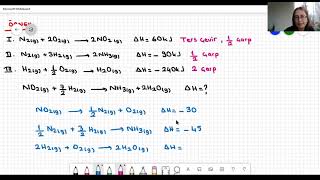 ÖRNEK
I. N₂(g) + 2O₂(g) → 2NO₂(g) ΔH = 60kJ Ters Çevir, 1/2 Çarp
II. N₂(g) + 3H₂(g) → 2NH₃(g) ΔH = -90kJ 1/2 Çarp
III. H₂(g) + 1/2 O₂(g) → H₂O(g) ΔH = -240kJ 2 Çarp
NO₂(g) + 7/2 H₂(g) → NH₃(g) + 2H₂O(g) ΔH = ?
NO₂(g) → 1/2 N₂(g) + O₂(g) ΔH = -30
1/2 N₂(g) + 3/2 H₂(g) → NH₃(g) ΔH = -45
2H₂(g) + O₂(g) → 2H₂O(g) ΔH =